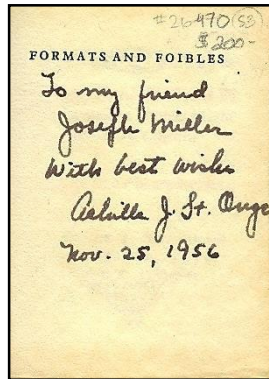 #26470 (53)
$200-
FORMATS AND FOIBLES
To my friend
Joseph Miller
With best wishes
Achille J. St. Onge
Nov. 25, 1956